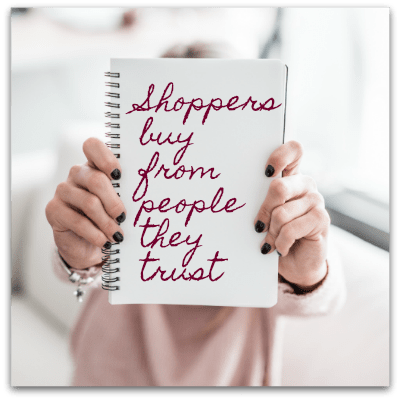 Shoppers
buy
from
people
they
trust